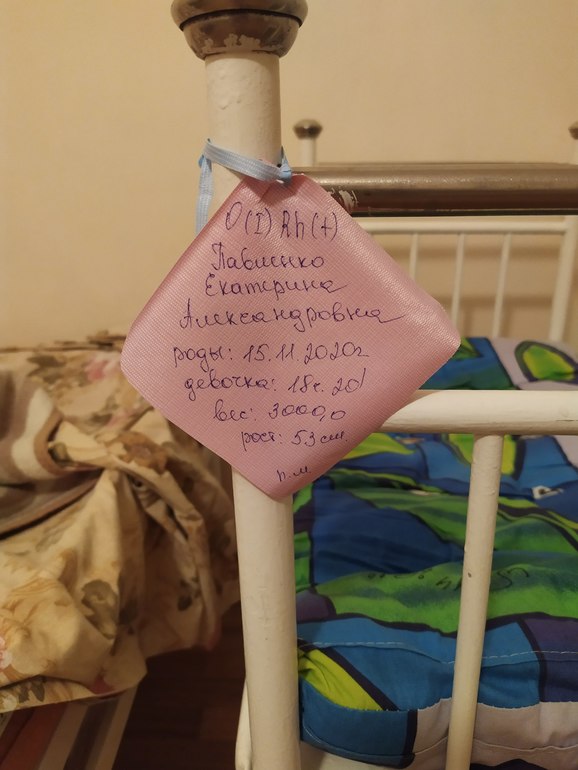 O(I) Rh(+)
Павленко
Екатерина
Александровна
роды: 15.11.2020г
девочка: 18ч. 20/
вес: 3000,0
рост: 53 см.
п.м.